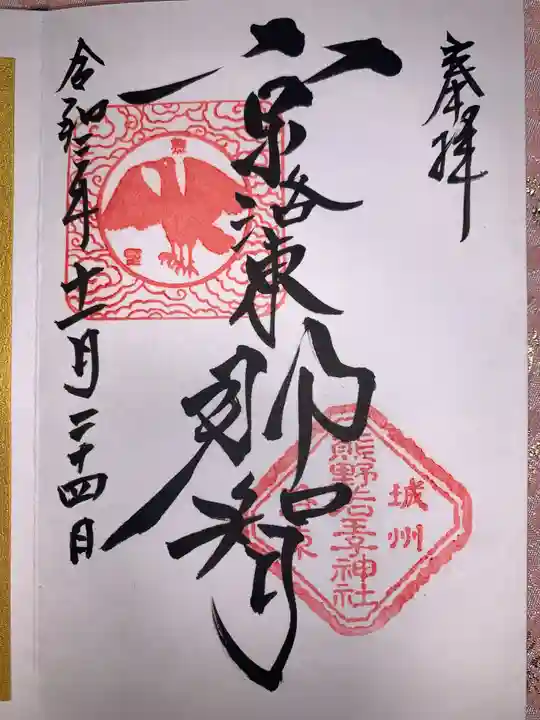 奉拝
京洛東那智
令和三年十一月二十四日
城州
熊野若王子神社